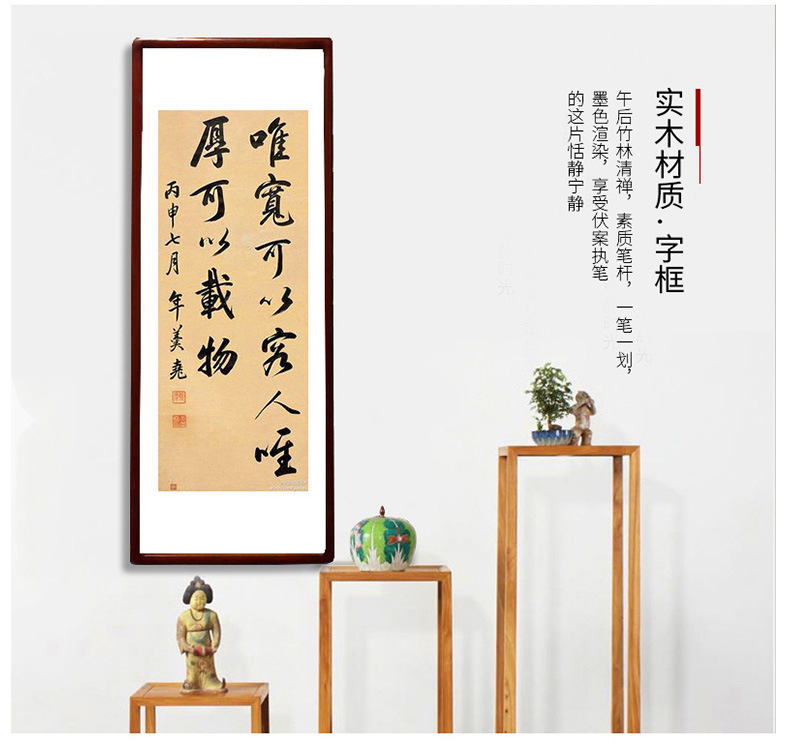 实木材质·字框
午后竹林清禅，素质笔杆，一笔一划，
墨色渲染，享受伏案执笔
的这片恬静宁静
唯寬可以容人唯
厚可以載物
丙申七月 年羹堯
时光